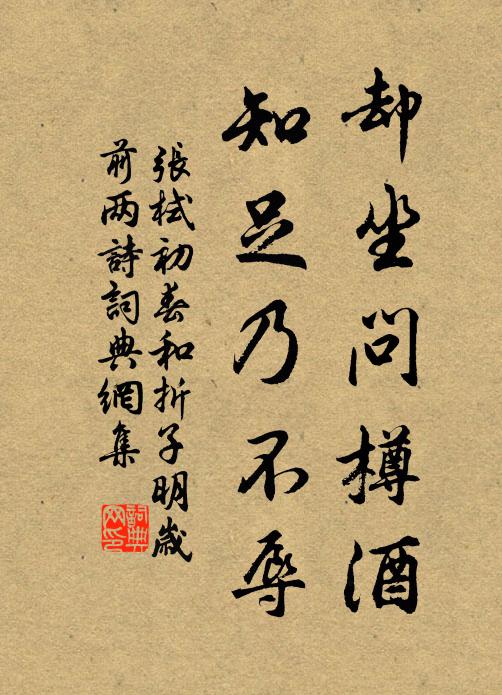 却坐問樽酒
知足乃不辱
張栻初春和折子明歲
前两詩詞典網集
詞典
网印